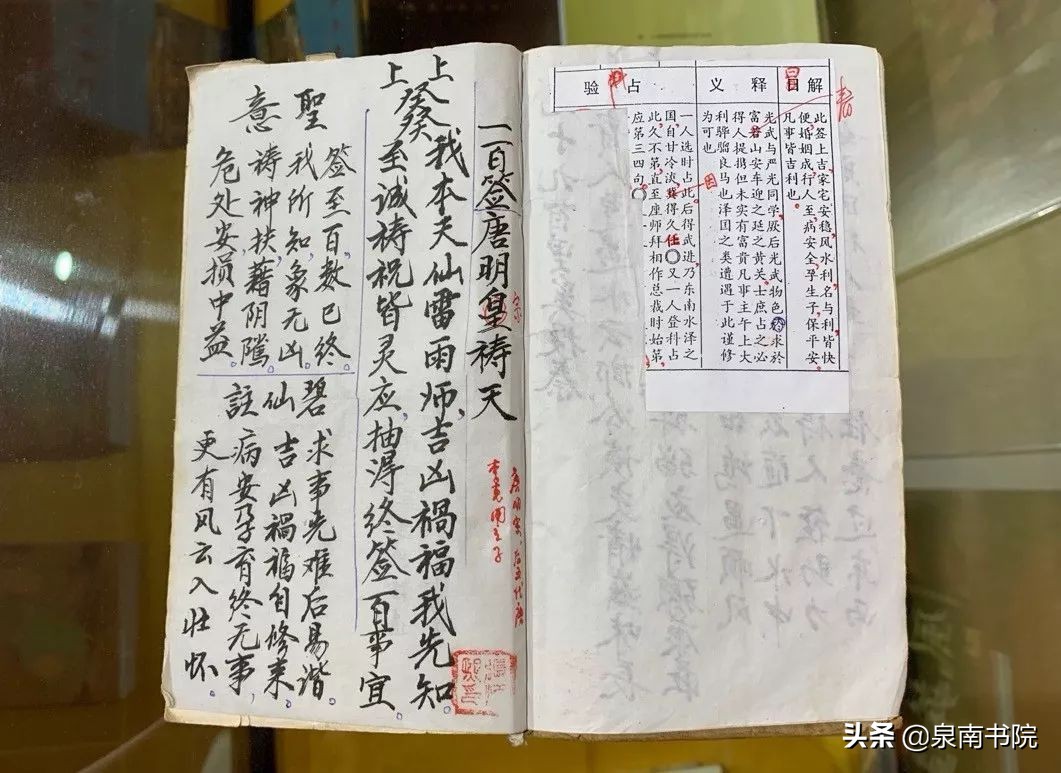 解
此签上吉家宅安稳风水利名与利皆快
便婚姻成行人至病安全孕生子保平安
凡事皆吉利也
释义
光武与严光同学厥后光武物色 求於
富春山安车迎之延之黄关士庶占之必
得人提携但未实有富贵凡事主午上大
利骅骝良马也泽国之类遭遇于此谨修
为可也
占验
一人选时占此后得武进乃东南水泽之
国自甘冷淡冀得久任〇又一人登科占
此久不第直至座师拜相作总裁时始第
应第三四句〇
春
因
一百签唐明皇祷天
宗
唐明宗 后五代唐
李克用之子
上上
癸癸
我本天仙雷雨师、吉凶祸福我先知。
至诚祷祝皆灵应，抽得终签百事宜。
聖意
签至百数已终
我所知，象无凶
祷神扶，藉阴騭
危处安，损中益。
碧仙註
求事先难后易谐
吉凶祸福自修来。
病安孕育终无事，
更有风云入壮怀。
头条 @泉南书院